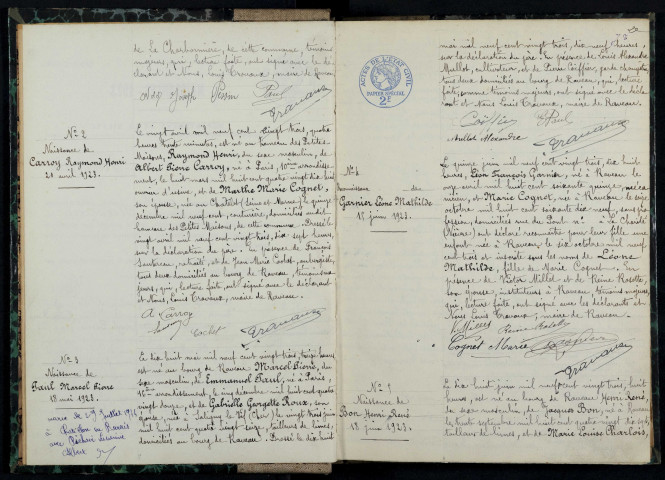 de la Charbonnière, de cette commune, témoins
majeurs, qui, lecture faite, ont signé avec le dé-
clarant et Nous, Louis Travaux, maire de Raveau.
Joseph
Paul
Travaux
N° 2
Naissance de
Carroy Raymond Henri
20 avril 1923.
Le vingt avril mil neuf cent vingt trois, quatre
heures trente minutes, est né au hameau des Petites-
Maisons, Raymond Henri, du sexe masculin, de
Albert Pierre Carroy, né à Paris, 10ème arrondisse-
ment, le huit mai mil huit cent quatre vingt dix huit
ouvrier d'usine, et de Marthe Marie Cognet,
son épouse, née au Châtelet (Seine et Marne) le quinze
décembre mil neuf cent, couturière, domiciliés audit
hameau des Petites Maisons, de cette commune. Dressé le
vingt avril mil neuf cent vingt trois, dix sept heures,
sur la déclaration du père. En présence de François
retraité, et de Jean Marie Cadet, aubergiste,
tous deux domiciliés au bourg de Raveau, témoins ma-
jeurs, qui, lecture faite, ont signé avec le déclarant
et Nous, Louis Travaux, maire de Raveau.
A Carroy
Cadet
Travaux
N° 3
Naissance de
Paul Marcel Pierre
18 mai 1923.
Le dix huit mai mil neuf cent vingt trois, treize heures
est né au bourg de Raveau Marcel Pierre, du
sexe masculin, de Emmanuel Paul, né à Paris,
arrondissement, le cinq décembre mil huit cent quatre
vingt douze, et de Gabrielle Georgette Roux, son
épouse, née à le vingt trois juin
mil huit cent quatre vingt seize, tailleurs de limes,
domiciliés au bourg de Raveau. Dressé le dix huit
ACTES DE L'ÉTAT CIVIL
PAPIER SPÉCIAL
2F
mai mil neuf cent vingt trois, dix neuf heures,
sur la déclaration du père. En présence de Louis Alexandre
Mullot, cultivateur, et de Lucien Coiffier, garde champêtre,
tous deux domiciliés au bourg de Raveau, qui, lecture
faite, comme témoins majeurs, ont signé avec le décla-
rant et Nous, Louis Travaux, maire de Raveau.
Coiffier
E Paul
Mullot Alexandre
Travaux
N° 4
Reconnaissance de
Garnier Léone Mathilde
15 juin 1923.
Le quinze juin mil neuf cent vingt trois, dix huit
heures, Léon François Garnier, né à Raveau le
onze avril mil huit cent soixante quinze,
et Marie Cognet, née à Raveau le
octobre mil huit cent soixante dix neuf, sans pro-
fession, domiciliés rue du Pont n° à la Charité
(Nièvre) ont déclaré reconnaître pour leur fille une
enfant née à Raveau, le dix octobre mil neuf
cent trois et inscrite sous les noms de Léone
Mathilde, fille de Marie Cognet. En
présence de Victor Millet et de Reine Rosette,
son épouse, instituteurs à Raveau, témoins majeurs,
qui, lecture faite, ont signé avec les déclarants et
Nous Louis Travaux, maire de Raveau.
V. Millet
Cognet Marie
Garnier
Travaux
N° 5
Naissance de
Bon Henri René
18 juin 1923.
Le dix huit juin mil neuf cent vingt trois, huit
heures, est né au bourg de Raveau Henri René,
du sexe masculin, de Jacques Bon, né à Raveau
le trente septembre mil huit cent quatre vingt dix sept,
tailleur de limes, et de Marie Louise Charlois,